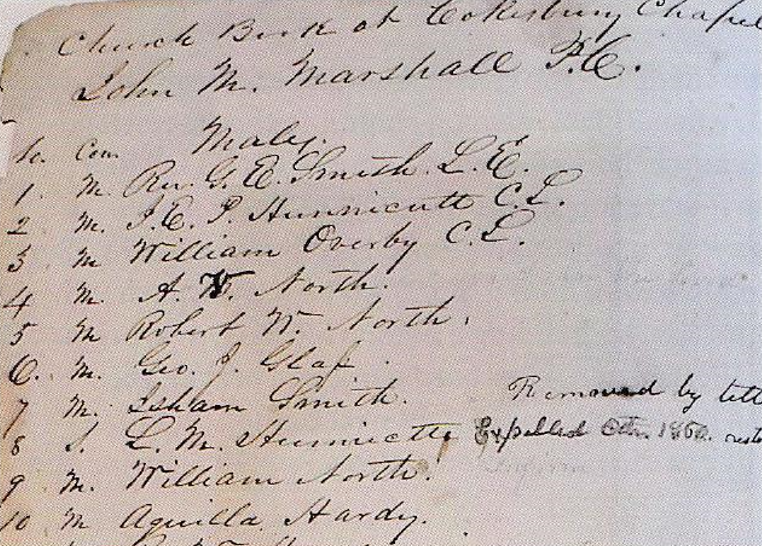 Church Book at Cokesbury Chapel
John M. Marshall P.C.
No. Con. Males.
1. M. Rev. G. E. Smith. L. E.
2 M. J. E. P. Hunnicutt C. L.
3 M William Overby C. L.
4 M. A. W. North.
5 M Robert W. North.
6. M. Geo. J. Glass.
7 M. Isham Smith. Removed by lett
8 S. L. M. Hunnicutt Expelled 1860. resto
9 M. William North.
10 M Aquilla Hardy.